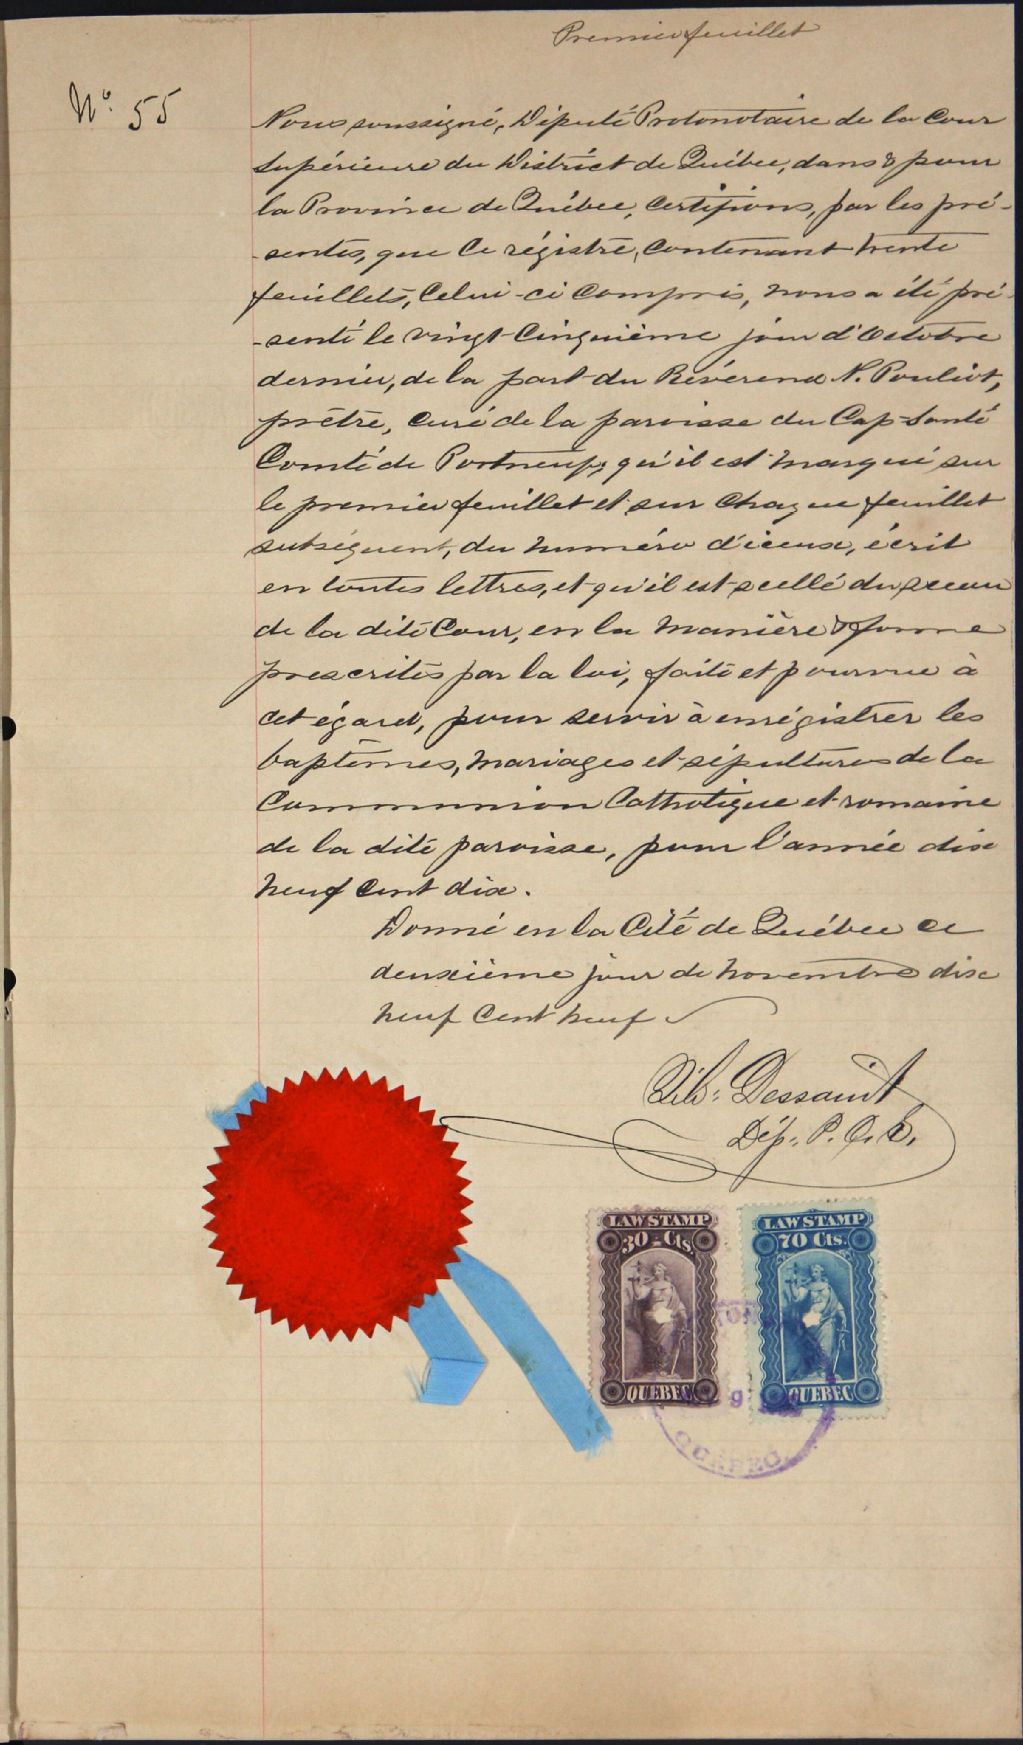 Premier feuillet
No. 55
Nous soussigné, Député Protonotaire de la Cour
Supérieure du District de Québec, dans & pour
la Province de Québec, certifions, par les pré-
-sentes, que ce régistre, contenant trente
feuillets, celui-ci compris, nous a été pré-
-senté le vingt-cinquième jour d'Octobre
dernier, de la part du Révérend N. Pouliot,
prêtre, curé de la paroisse du Cap-Santé
Comté de Portneuf; qu'il est marqué sur
le premier feuillet et sur chaque feuillet
subséquent, du numéro d'iceux, écrit
en toutes lettres, et qu'il est scellé du sceau
de la dite Cour, en la manière & forme
prescrites par la loi, faite et pourvue à
cet égard, pour servir à enrégistrer les
baptêmes, mariages et sépultures de la
Communion Catholique et romaine
de la dite paroisse, pour l'année dix
neuf cent dix.
Donné en la Cité de Québec ce
deuxième jour de novembre dix
neuf cent neuf
Dessaint
Dép. P. C. S.
LAW STAMP
30 Cts.
QUEBEC
LAW STAMP
70 Cts.
QUEBEC
9
QUEBEC